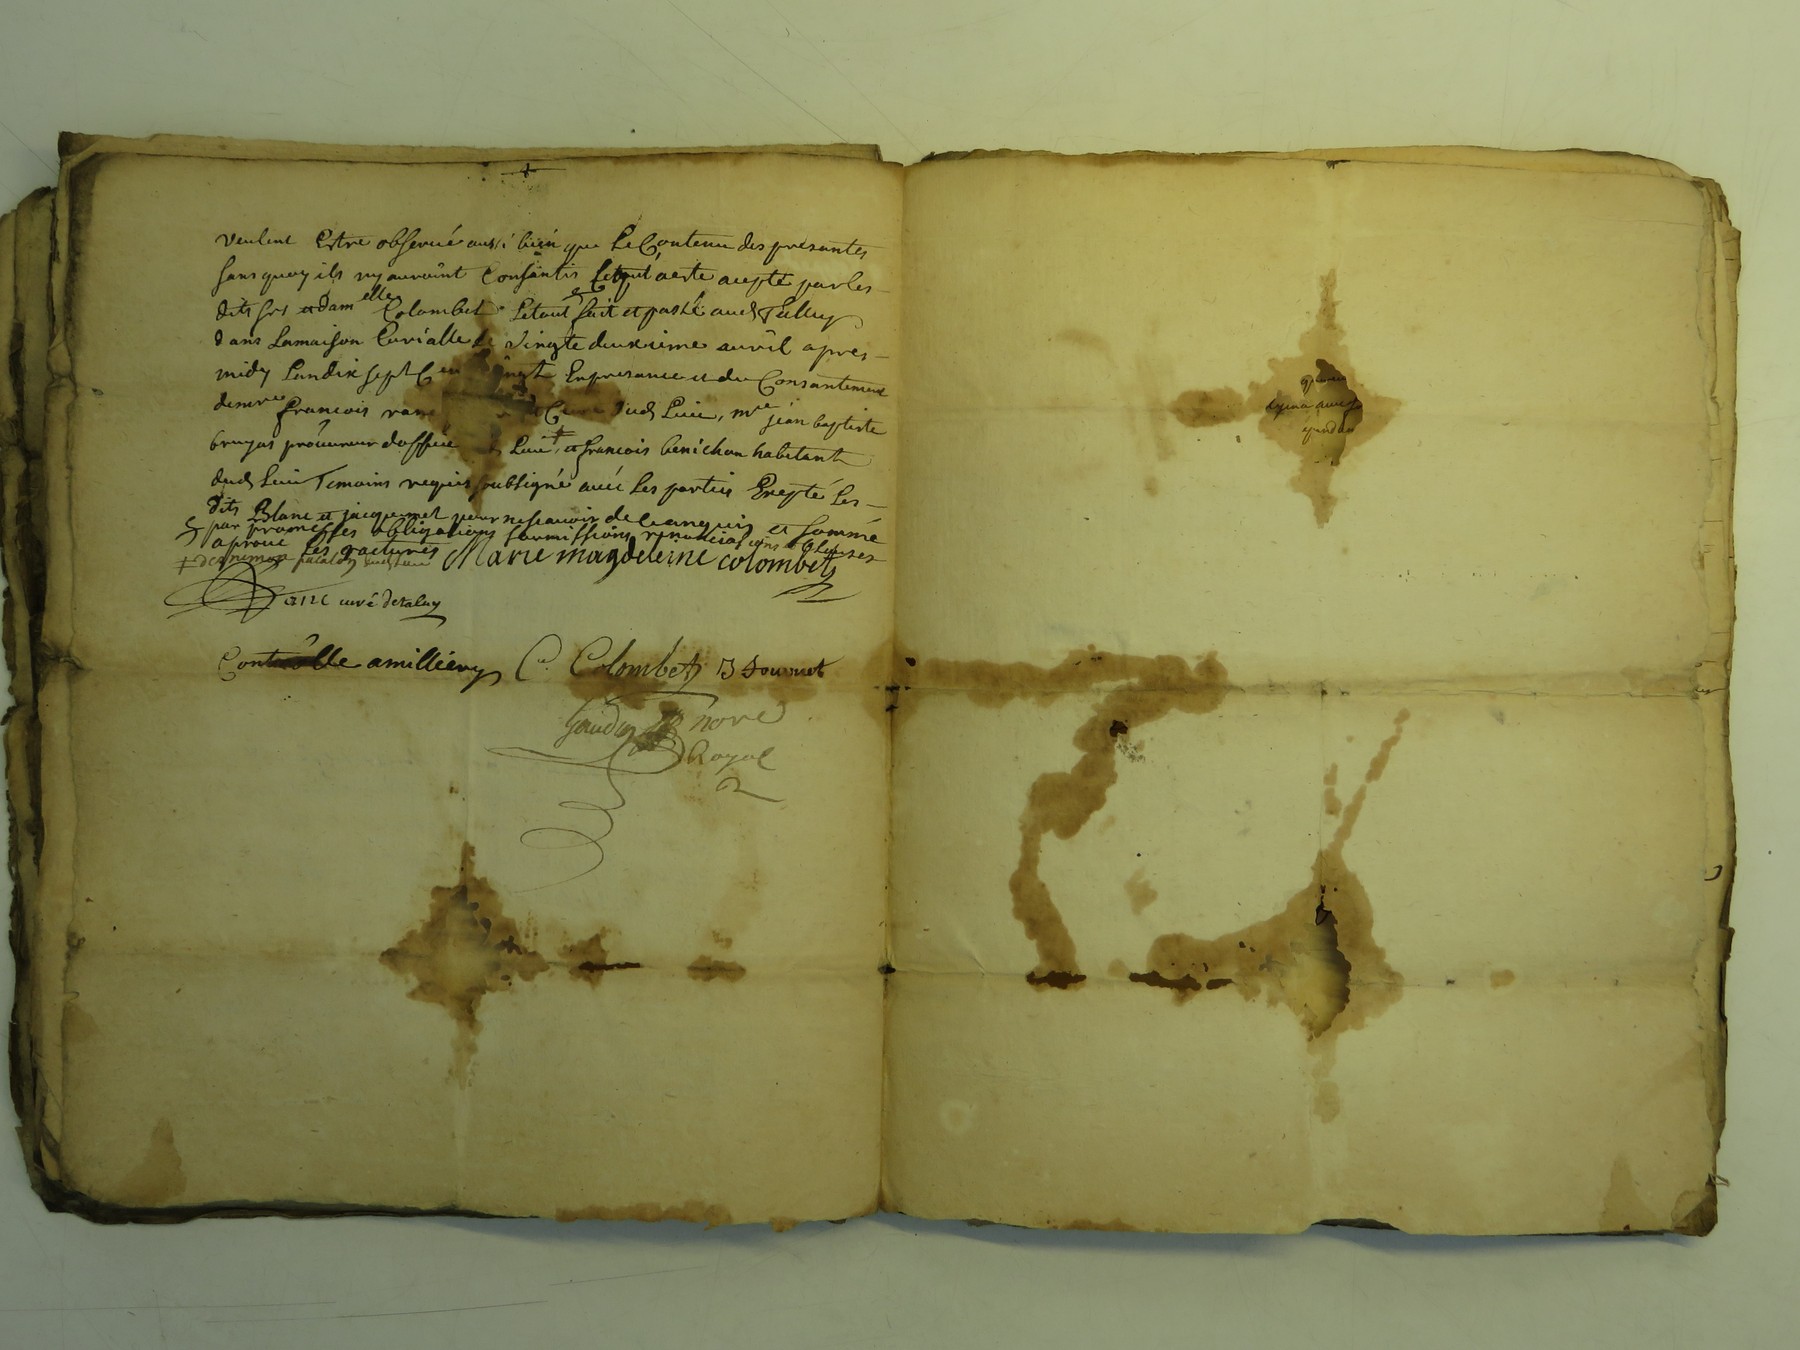 veulent Estre observé aussi bien que Le Contenu des présantes
sans quoy ils ny auroint Consantis Letout acsté acepté par les
dits srs et dam elle Colombet Letout fait et passé aud Talluy
dans Lamaison Curialle Le vingte deuxsieme avril apres
midy Landix sept Cen vingt Enpresance et du Consantement
demre François Curé dud Lieu, mre jean baptiste
bruyas procureur doffice Lieu, et françois benichon habitant
dud Lieu Temoins requis soubsigné avec Les parties Exepté Les
dits Blanc et jacquemet pour ne scavoir de ce anquis et sommé
par promesses obligations soumissions renonciations et clauses
aprouvé Les ratures Marie magdeleine colombet
curé detaluy
Contrôlle amilliery C. Colombet B Journet
nore
Royal